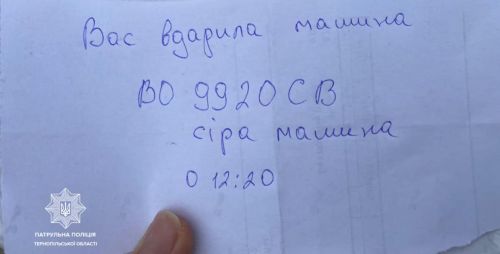 Вас вдарила машина
ВО 9920 СВ
сіра машина
О 12:20
ПАТРУЛЬНА ПОЛІЦІЯ
ТЕРНОПІЛЬСЬКОЇ ОБЛАСТІ